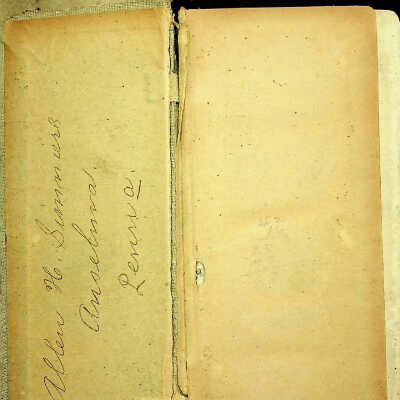 Allen H. Simmers
Anselma.
Penna.